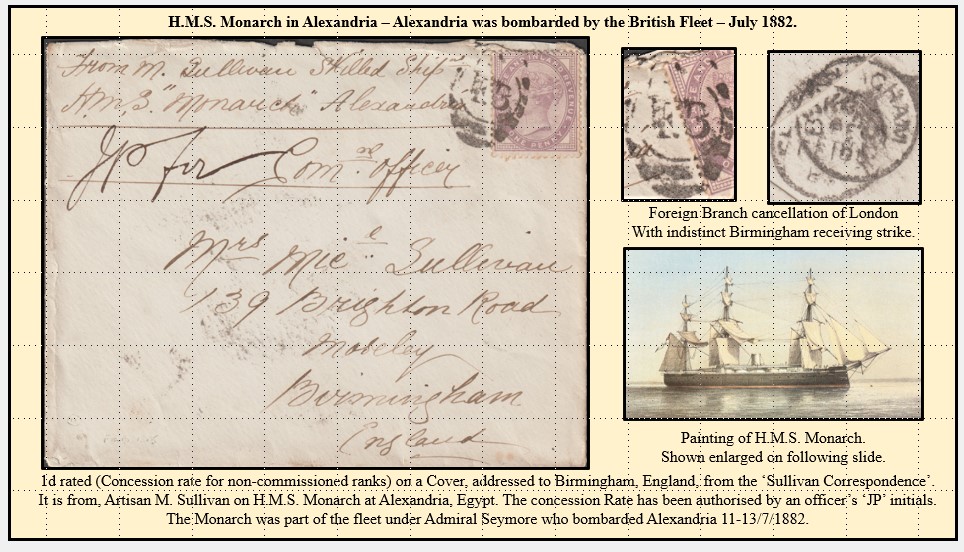 H.M.S. Monarch in Alexandria – Alexandria was bombarded by the British Fleet – July 1882.
From M. Sullivan Skilled Ship
H.M.S. "Monarch" Alexandria
JP for Comᵍ officer
Mrs Micˡ Sullivan
139 Brighton Road
Moseley
Birmingham
England
Foreign Branch cancellation of London
With indistinct Birmingham receiving strike.
Painting of H.M.S. Monarch.
Shown enlarged on following slide.
1d rated (Concession rate for non-commissioned ranks) on a Cover, addressed to Birmingham, England, from the ‘Sullivan Correspondence’.
It is from, Artisan M. Sullivan on H.M.S. Monarch at Alexandria, Egypt. The concession Rate has been authorised by an officer’s ‘JP’ initials.
The Monarch was part of the fleet under Admiral Seymore who bombarded Alexandria 11-13/7/1882.